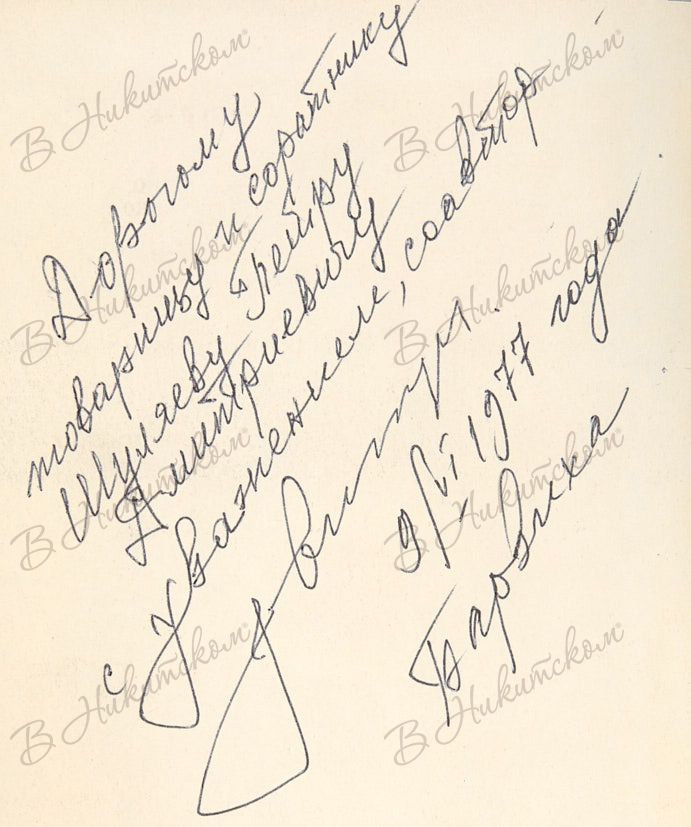 Дорогому
товарищу и соратнику
Шуляеву Петру
Дмитриевичу
с Уважением, соавтор
9/VI 1977 года
Барвиха
В Никитском
В Никитском
В Никитском
В Никитском
В Никитском
В Никитском
В Никитском
В Никитском